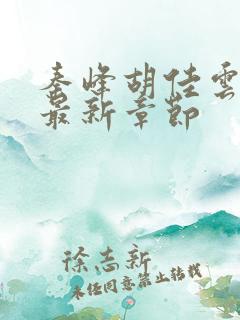 秦峰胡佳雲
最新章節
徐志新
未经同意禁止转载